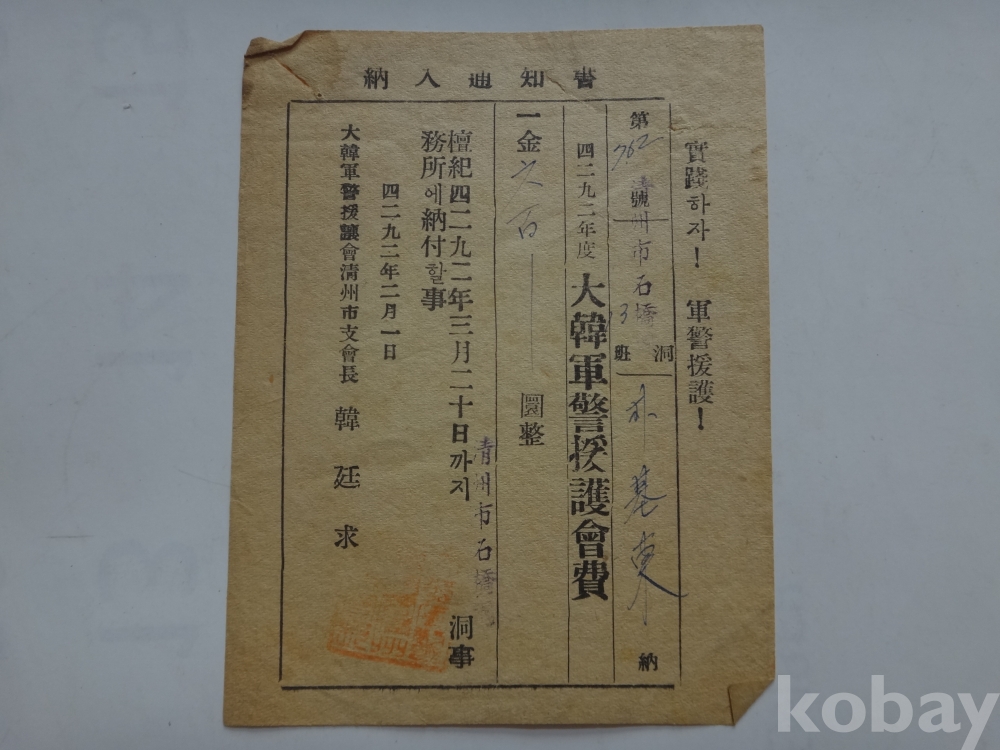 納入通知書
實踐하자! 軍警援護!
第762號
清州市石橋洞
13班
朴基東 納
四二九二年度 大韓軍警援護會費
一金六百 圜整
檀紀四二九二年三月二十日까지 清州市石橋洞事
務所에納付할事
四二九二年二月一日
大韓軍警援護會清州市支會長 韓廷求
kobay